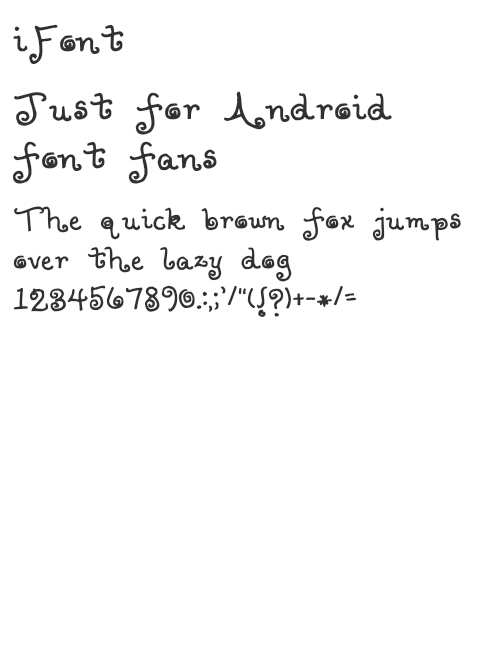 iFont
Just for Android
font fans
The quick brown fox jumps
over the lazy dog
1234567890.:,;'/"(!?)+-*/=